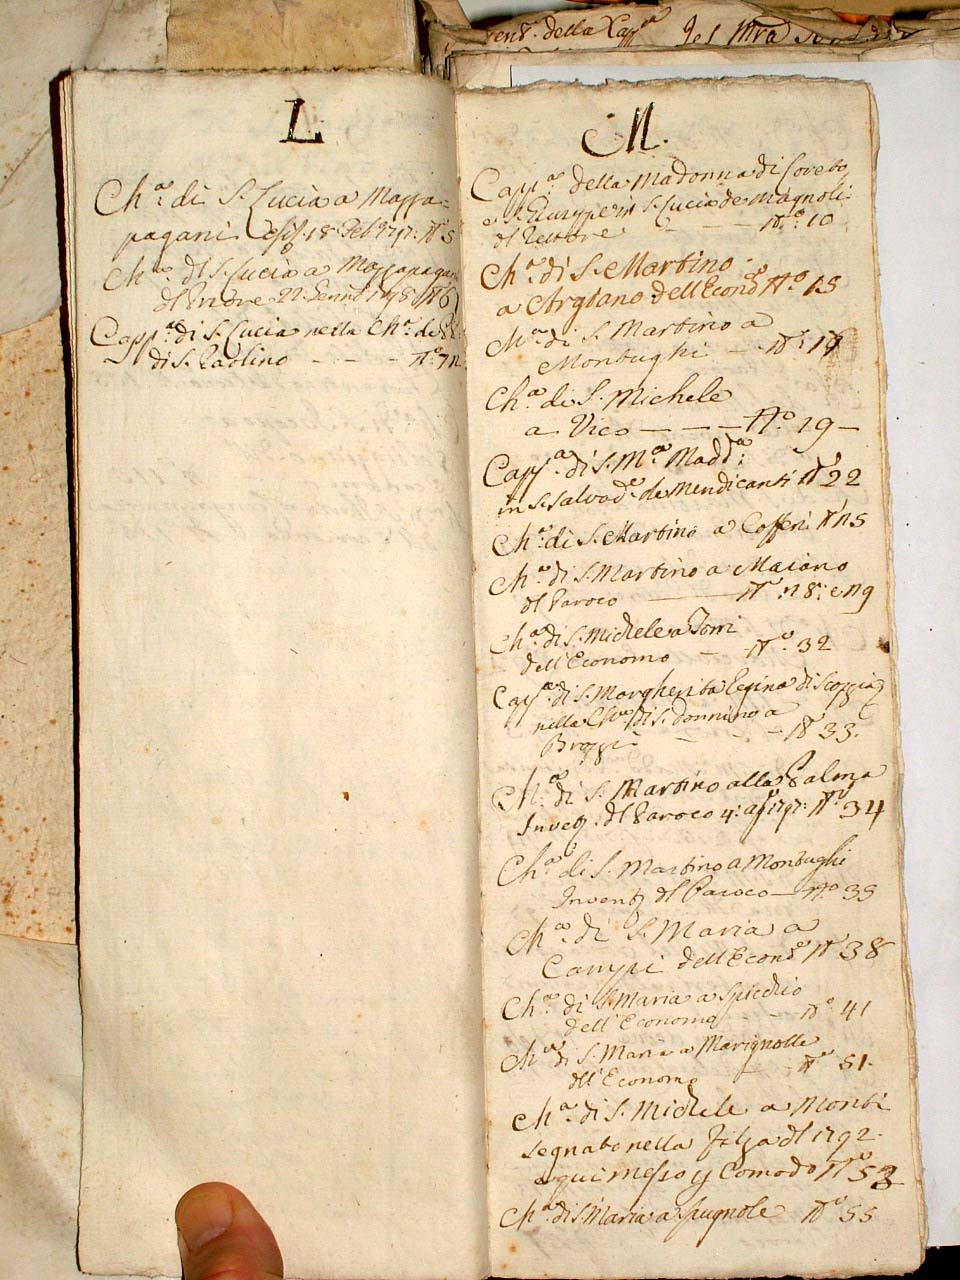 della Capp.a
L.
Ch.a di S. Lucia a Mazza=
pagani 18 Feb. N.o 5
Ch.a di S. Lucia a Mazzapagani
22 Genn.o N.o 6
Capp.a di S. Lucia nella Ch.a
di S. Paolino - - - - N.o 72
M.
Capp.a della Madonna di Loreto
e S. Giuseppe in S. Lucia de Magnoli
del Rettore - - - N.o 10
Ch.a di S. Martino
a Argiano dell'Econ.o N.o 15
Ch.a di S. Martino a
Montughi - N.o 17
Ch.a di S. Michele
a Vico - - - - N.o 19 -
Capp.a di S. M.a Madd.a
in S. Salvad.e de Mendicanti N.o 22
Ch.a di S. Martino a N.o 25
Ch.a di S. Martino a Maiano
del Paroco - N.o 28: e 29
Ch.a di S. Michele a Torri
dell'Economo - N.o 32
Capp.a di S. Margherita Regina di Scozzia
nella Ch.a di S. Donnino a
Brozzi - - - N.o 33.
Ch.a di S. Martino alla Palma
Invent. del Paroco 4: 1797: N.o 34
Ch.a di S. Martino a Montughi
Invent. del Paroco - N.o 35
Ch.a di S. Maria a
Campi dell'Econ.o N.o 38
Ch.a di S. Maria a Spicchio
dell'Economo - - N.o 41
Ch.a di S. Maria a Marignolle
dell'Economo - - N.o 51.
Ch.a di S. Michele a Monti
segnato nella filza del 1792.
e qui messo p Comodo N.o 53
Ch.a di S. Maria a Spugnole N.o 55